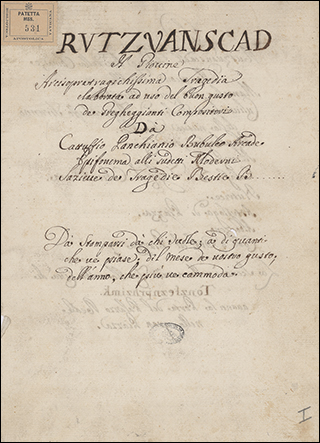 PATETTA
MSS.
531
RVTZVANSCAD
Il Giovine
Arcisopratragichissima Tragedia
elaborata ad uso del buon gusto
de Grecheggianti Compositori
Da
Catuffio Panchiano Bubulco Arcade
alli Moderni
de Tragedie
Da Stamparsi da chi vuole, a di quanti
che ve piase, del mese a vostro gusto,
dell'anno, che più ve commoda
I